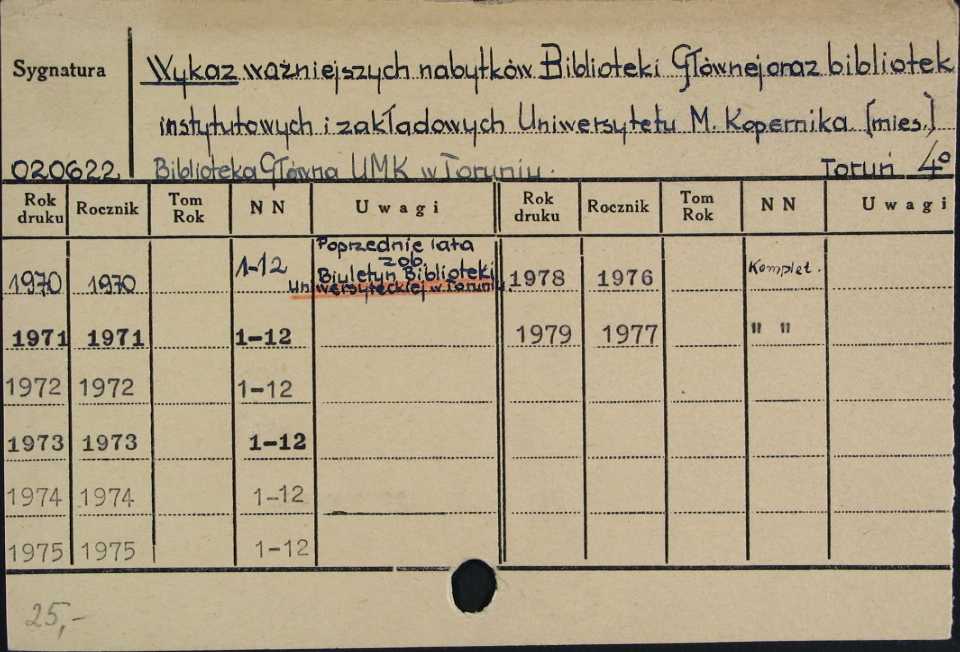 Sygnatura
Wykaz ważniejszych nabytków Biblioteki Głównej oraz bibliotek
instytutowych i zakładowych Uniwersytetu M. Kopernika. [mies.]
020622 Biblioteka Główna UMK w Toruniu. Toruń 4°
Rok druku Rocznik Tom Rok NN Uwagi Rok druku Rocznik Tom Rok NN Uwagi
1970 1970 1-12 Poprzednie lata
zob.
Biuletyn Biblioteki
Uniwersyteckiej w Toruniu.
1978 1976 Komplet.
1971 1971 1-12 1979 1977 " "
1972 1972 1-12
1973 1973 1-12
1974 1974 1-12
1975 1975 1-12
25,-